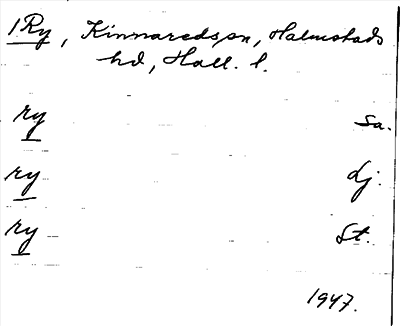 1 Ry, Kinnareds sn, Halmstads
hd, Hall. l.
ry sa.
ry dj.
ry St.
1947.